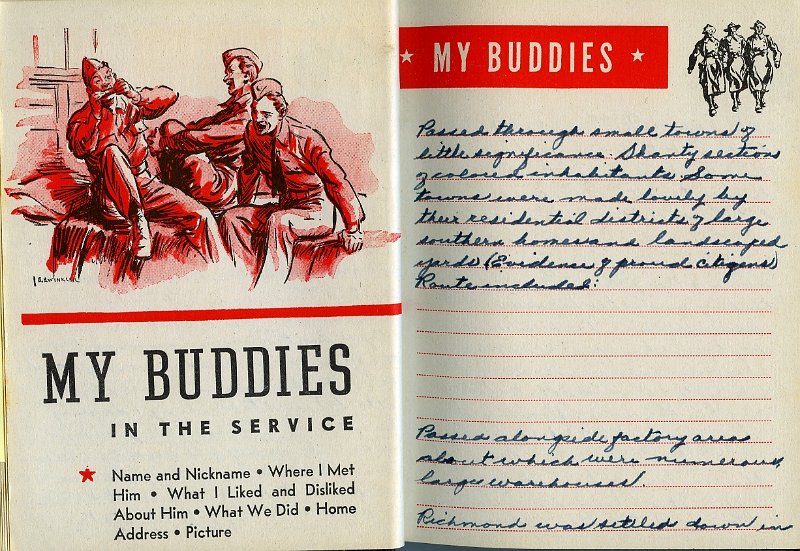 MY BUDDIES
IN THE SERVICE
★ Name and Nickname • Where I Met
Him • What I Liked and Disliked
About Him • What We Did • Home
Address • Picture
★ MY BUDDIES ★
Passed through small towns of
little significance. Shanty sections
of colored inhabitants. Some
towns were made lovely by
their residential districts of large
southern homes and landscaped
yards (Evidence of proud citizens)
Route included:
Passed alongside factory areas
about which were numerous,
large warehouses.
Richmond was settled down in